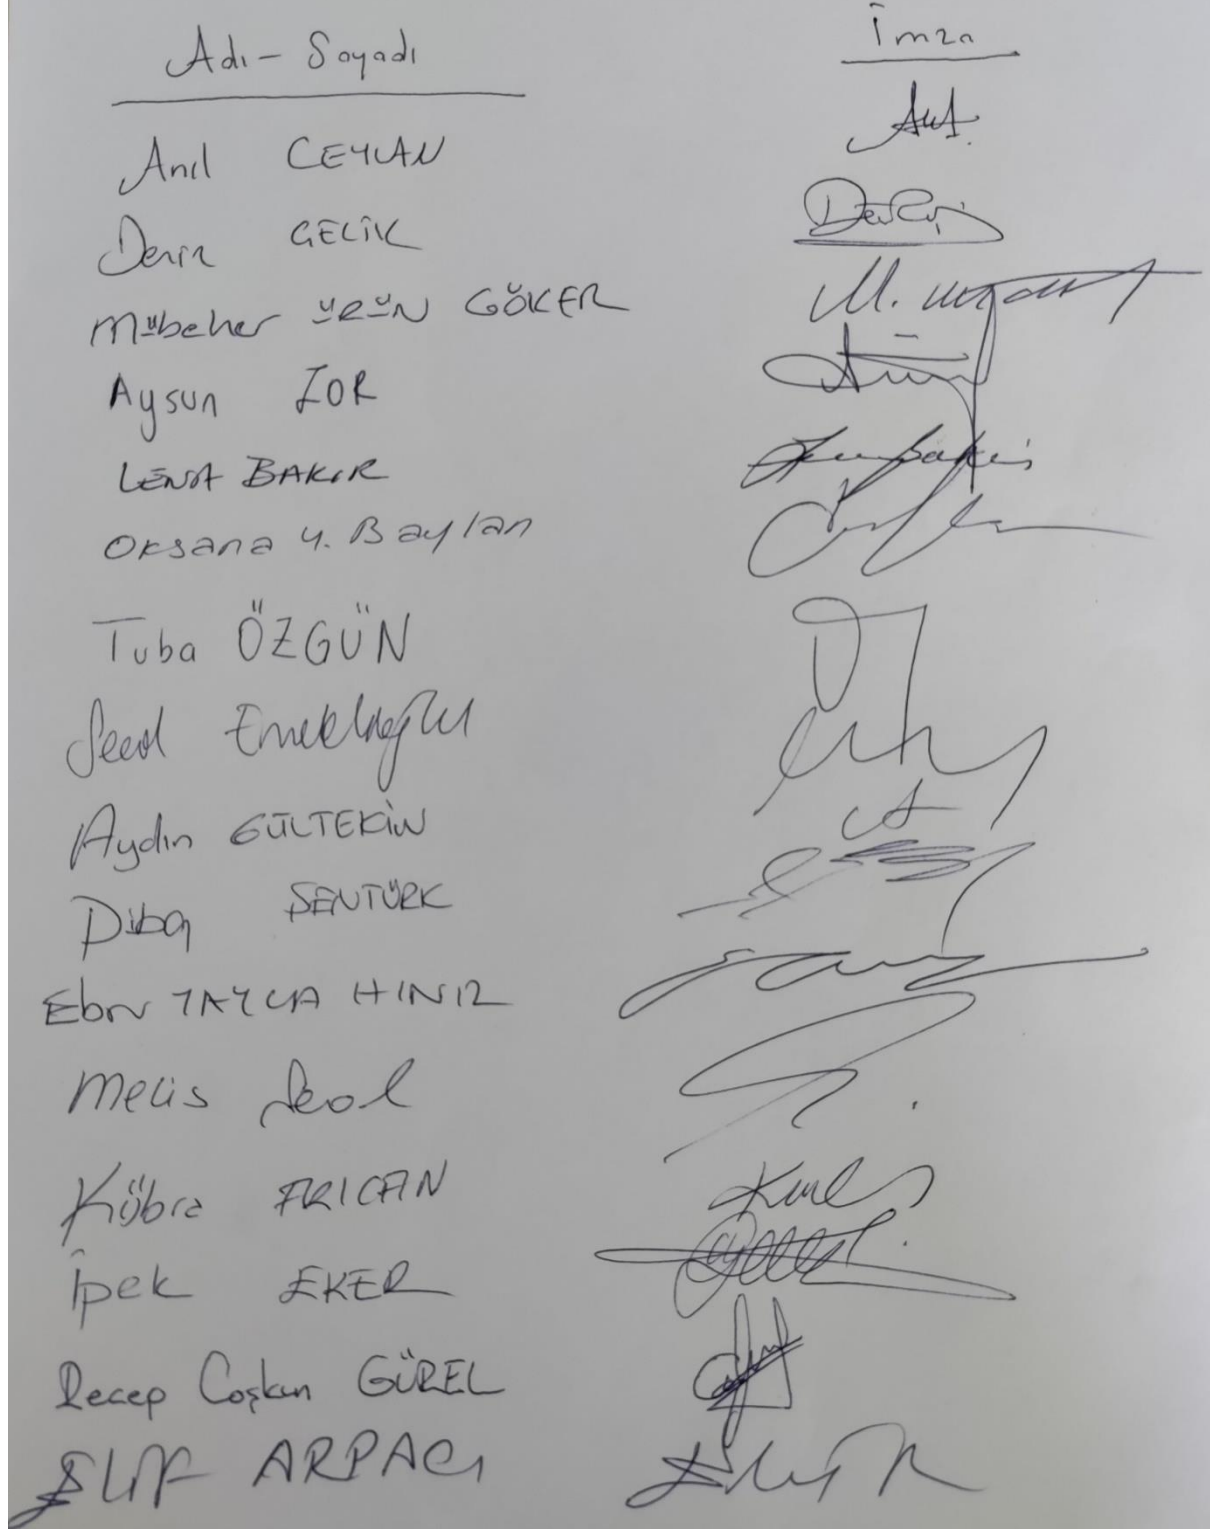 Adı - Soyadı
İmza
Anıl CEYLAN
Deniz GELİK
Mübeher ÜRÜN GÖKER
Aysun ZOR
LENA BAKIR
Oksana Y. Baylan
Tuba ÖZGÜN
Seeol Emeklioğlu
Aydın GÜLTEKİN
Diba ŞENTÜRK
Ebru YAYLA HINIZ
Melis Seol
Kübra ARICAN
İpek EKER
Recep Coşkun GÜREL
ELİF ARPACI